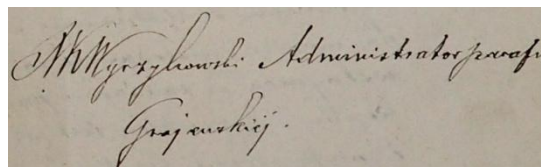 XMWyrzykowski Administrator parafi
Grajewskiéj.